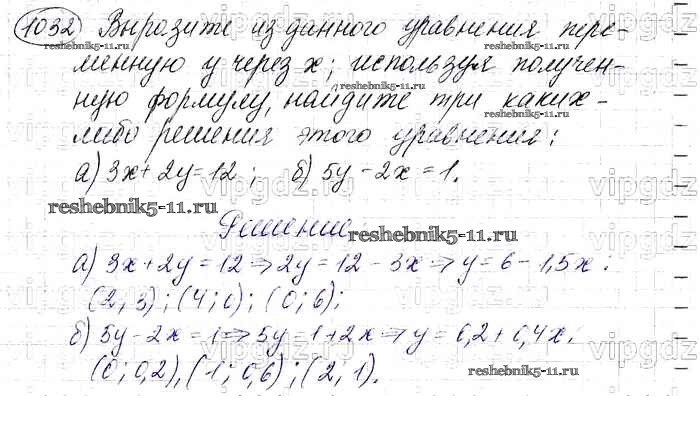 1032 Выразите из данного уравнения пере-
reshebnik5-11.ru
менную y через x; используя получен-
reshebnik5-11.ru
ную формулу, найдите три каких-
либо решения этого уравнения:
а) 3x + 2y = 12; б) 5y - 2x = 1.
vipgdz vipgdz vipgdz
reshebnik5-11.ru
Решение.
reshebnik5-11.ru
а) 3x + 2y = 12 ⇒ 2y = 12 - 3x ⇒ y = 6 - 1,5x:
(2; 3); (4; 0); (0; 6);
б) 5y - 2x = 1 ⇒ 5y = 1 + 2x ⇒ y = 0,2 + 0,4x;
vipgdz vipgdz vipgdz
(0; 0,2), (1; 0,6); (2; 1).
reshebnik5-11.ru